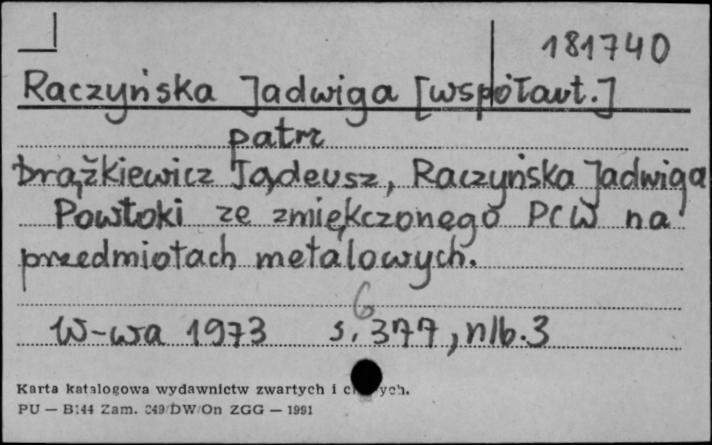 181740
Raczyńska Jadwiga [współaut.]
patrz
Drążkiewicz Tadeusz, Raczyńska Jadwiga
Powłoki ze zmiękczonego PCW na
przedmiotach metalowych.
6
W-wa 1973 s. 377, nlb. 3
Karta katalogowa wydawnictw zwartych i
PU — B144 Zam. 249/DW/On ZGG — 1991